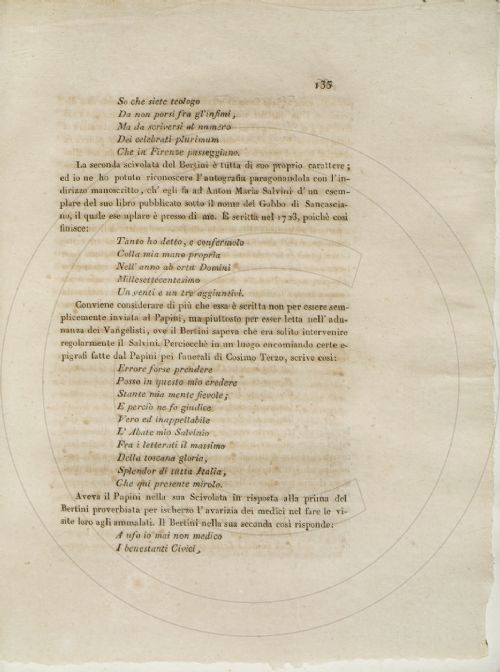 135
So che siete teologo
Da non porsi fra gl'infimi,
Ma da scriversi al numero
Dei celebrati plurimum
Che in Firenze passeggiano.
La seconda scivolata del Bertini è tutta di suo proprio carattere;
ed io ne ho potuto riconoscere l'autografia paragonandola con l'in-
dirizzo manoscritto, ch' egli fa ad Anton Maria Salvini d' un esem-
plare del suo libro pubblicato sotto il nome del Gobbo di Sancascia-
no, il quale esemplare è presso di me. È scritta nel 1723, poichè così
finisce:
Tanto ho detto, e confermolo
Colla mia mano propria
Nell' anno ab ortu Domini
Millesettecentesimo
Un venti e un tre aggiuntivi.
Conviene considerare di più che essa è scritta non per essere sem-
plicemente inviata al Papini, ma piuttosto per esser letta nell' adu-
nanza dei Vangelisti, ove il Bertini sapeva che era solito intervenire
regolarmente il Salvini. Perciocchè in un luogo encomiando certe e-
pigrafi fatte dal Papini pei funerali di Cosimo Terzo, scrive così:
Errore forse prendere
Posso in questo mio credere
Stante mia mente fievole;
E perciò ne fo giudice
Vero ed inappellabile
E' Abate mio Salvinio
Fra i letterati il massimo
Della toscana gloria,
Splendor di tutta Italia,
Che qui presente mirolo.
Aveva il Papini nella sua Scivolata in risposta alla prima del
Bertini proverbiata per ischerzo l' avarizia dei medici nel fare le vi-
site loro agli ammalati. Il Bertini nella sua seconda così risponde:
A ufo io mai non medico
I benestanti Civici,